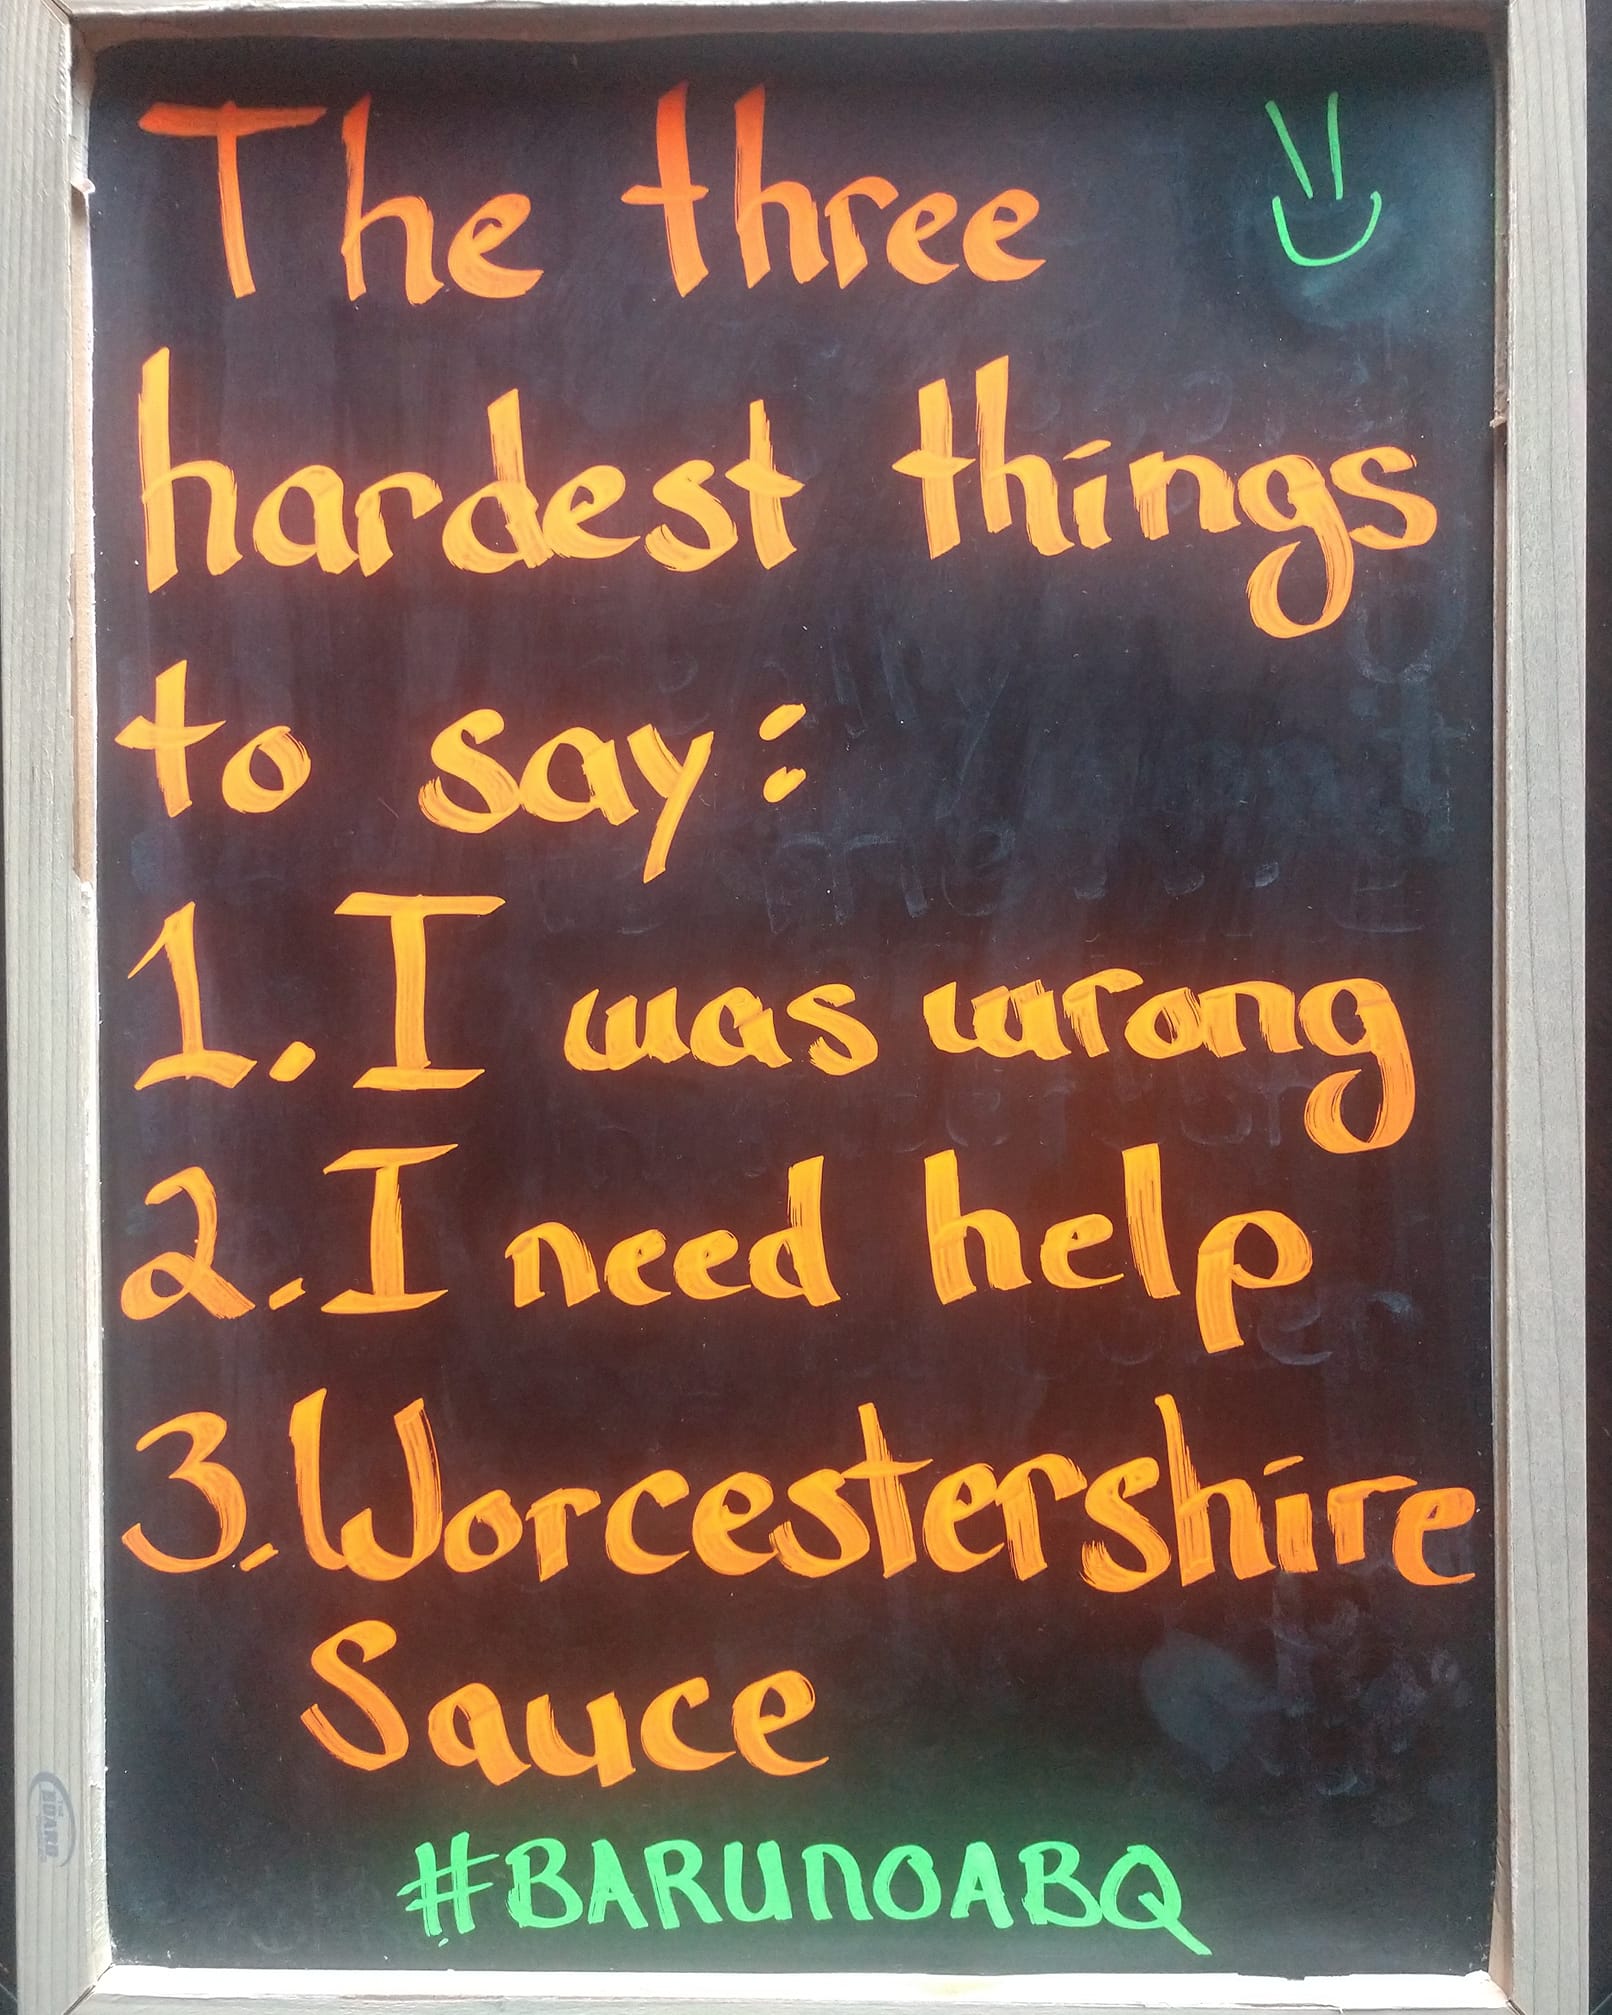 The three
hardest things
to say:
1. I was wrong
2. I need help
3. Worcestershire
Sauce
#BARUNOABQ
THE BOARD